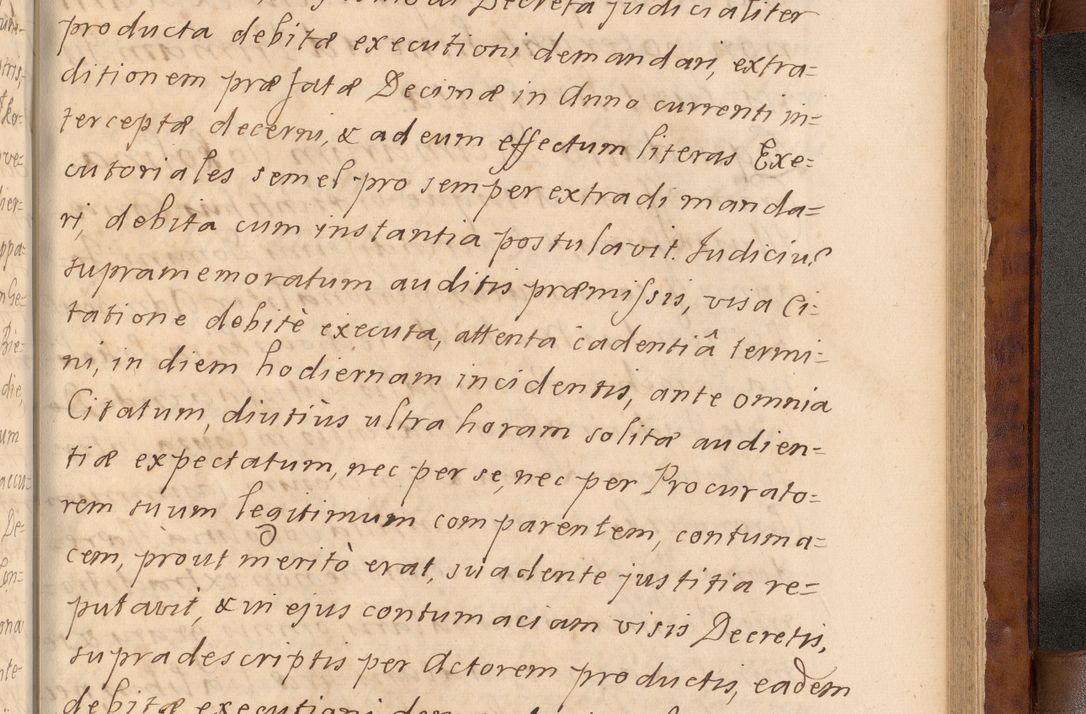 Decreta judicialiter
producta debitæ executioni demandari, extra=
ditionem præfatæ Decimæ in Anno currenti in=
terceptæ decerni, & ad eum effectum literas Exe=
cutoriales semel pro semper extradi manda=
ri, debita cum instantia postulavit. Judiciu͂
supramemoratum auditis præmissis, visa Ci=
tatione debitè executa, attenta cadentiâ termi=
ni, in diem hodiernam incidentis, ante omnia
Citatum, diutiùs ultra horam solitæ audien=
tiæ expectatum, nec per se, nec per Procurato=
rem suum legitimum comparentem, contuma=
cem, prout meritò erat, suadente justitia re=
putavit, & in ejus contumaciam visis Decretis,
supradescriptis per Actorem productis, eadem
debitæ executioni